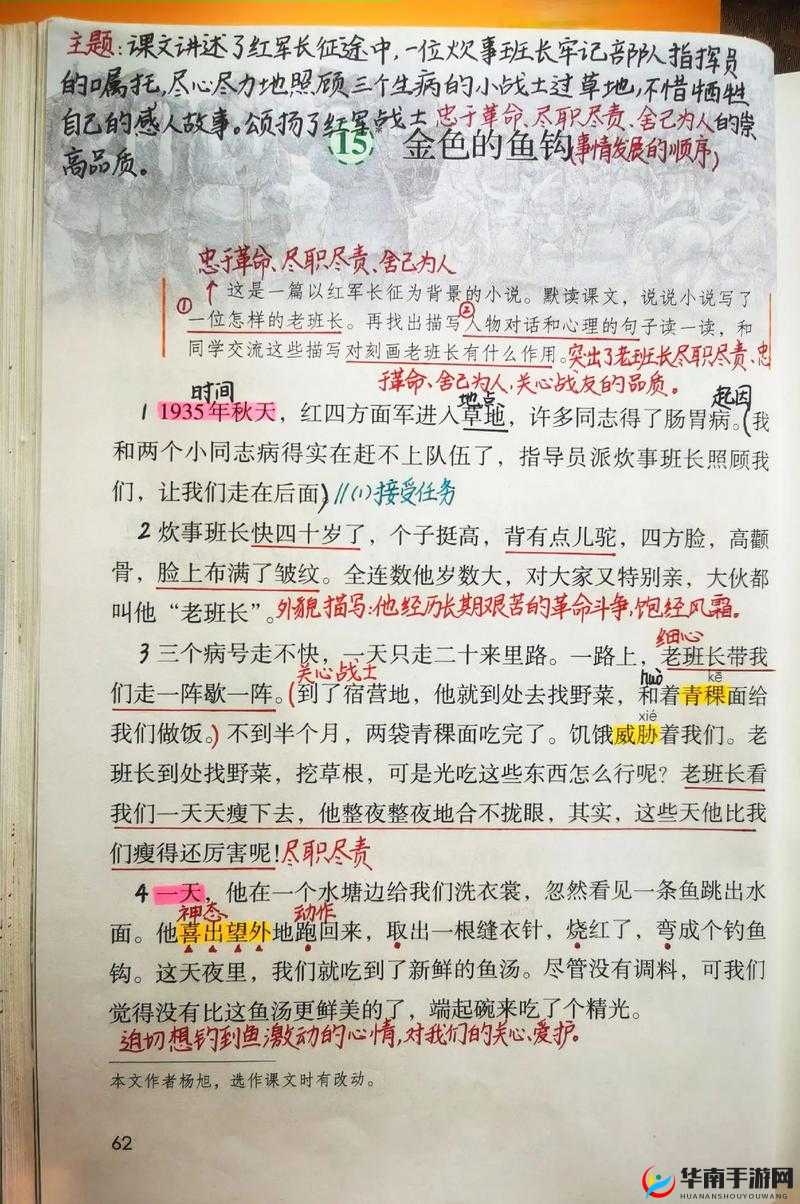 主题:课文讲述了红军长征途中,一位炊事班长牢记部队指挥员
的嘱托,尽心尽力地照顾三个生病的小战士过草地,不惜牺牲
自己的感人故事。颂扬了红军战士忠于革命、尽职尽责、舍己为人的崇
高品质。
15 金色的鱼钩(事情发展的顺序)
忠于革命、尽职尽责、舍己为人
①↑这是一篇以红军长征为背景的小说。默读课文,说说小说写了
②
一位怎样的老班长。再找出描写人物对话和心理的句子读一读,和
同学交流这些描写对刻画老班长有什么作用。突出了老班长尽职尽责、忠
于革命、舍己为人,关心战友的品质。
时间 地点 起因
1 1935年秋天,红四方面军进入草地,许多同志得了肠胃病。(我
和两个小同志病得实在赶不上队伍了,指导员派炊事班长照顾我
们,让我们走在后面)//(1)接受任务
2 炊事班长快四十岁了,个子挺高,背有点儿驼,四方脸,高颧
骨,脸上布满了皱纹。全连数他岁数大,对大家又特别亲,大伙都
叫他“老班长”。外貌描写:他经历长期艰苦的革命斗争,饱经风霜。
细心
3 三个病号走不快,一天只走二十来里路。一路上,老班长带我
关心战士 huò kē
们走一阵歇一阵。(到了宿营地,他就到处去找野菜,和着青稞面给
xié
我们做饭。)不到半个月,两袋青稞面吃完了。饥饿威胁着我们。老
班长到处找野菜,挖草根,可是光吃这些东西怎么行呢?老班长看
我们一天天瘦下去,他整夜整夜地合不拢眼,其实,这些天他比我
们瘦得还厉害呢!尽职尽责
4 一天,他在一个水塘边给我们洗衣裳,忽然看见一条鱼跳出水
神态 动作
面。他喜出望外地跑回来,取出一根缝衣针,烧红了,弯成个钓鱼
钩。这天夜里,我们就吃到了新鲜的鱼汤。尽管没有调料,可我们
觉得没有比这鱼汤更鲜美的了,端起碗来吃了个精光。
迫切想钓到鱼激动的心情,对我们的关心、爱护。
本文作者杨旭,选作课文时有改动。
62
华南手游网
HUANANSHOUYOUWANG